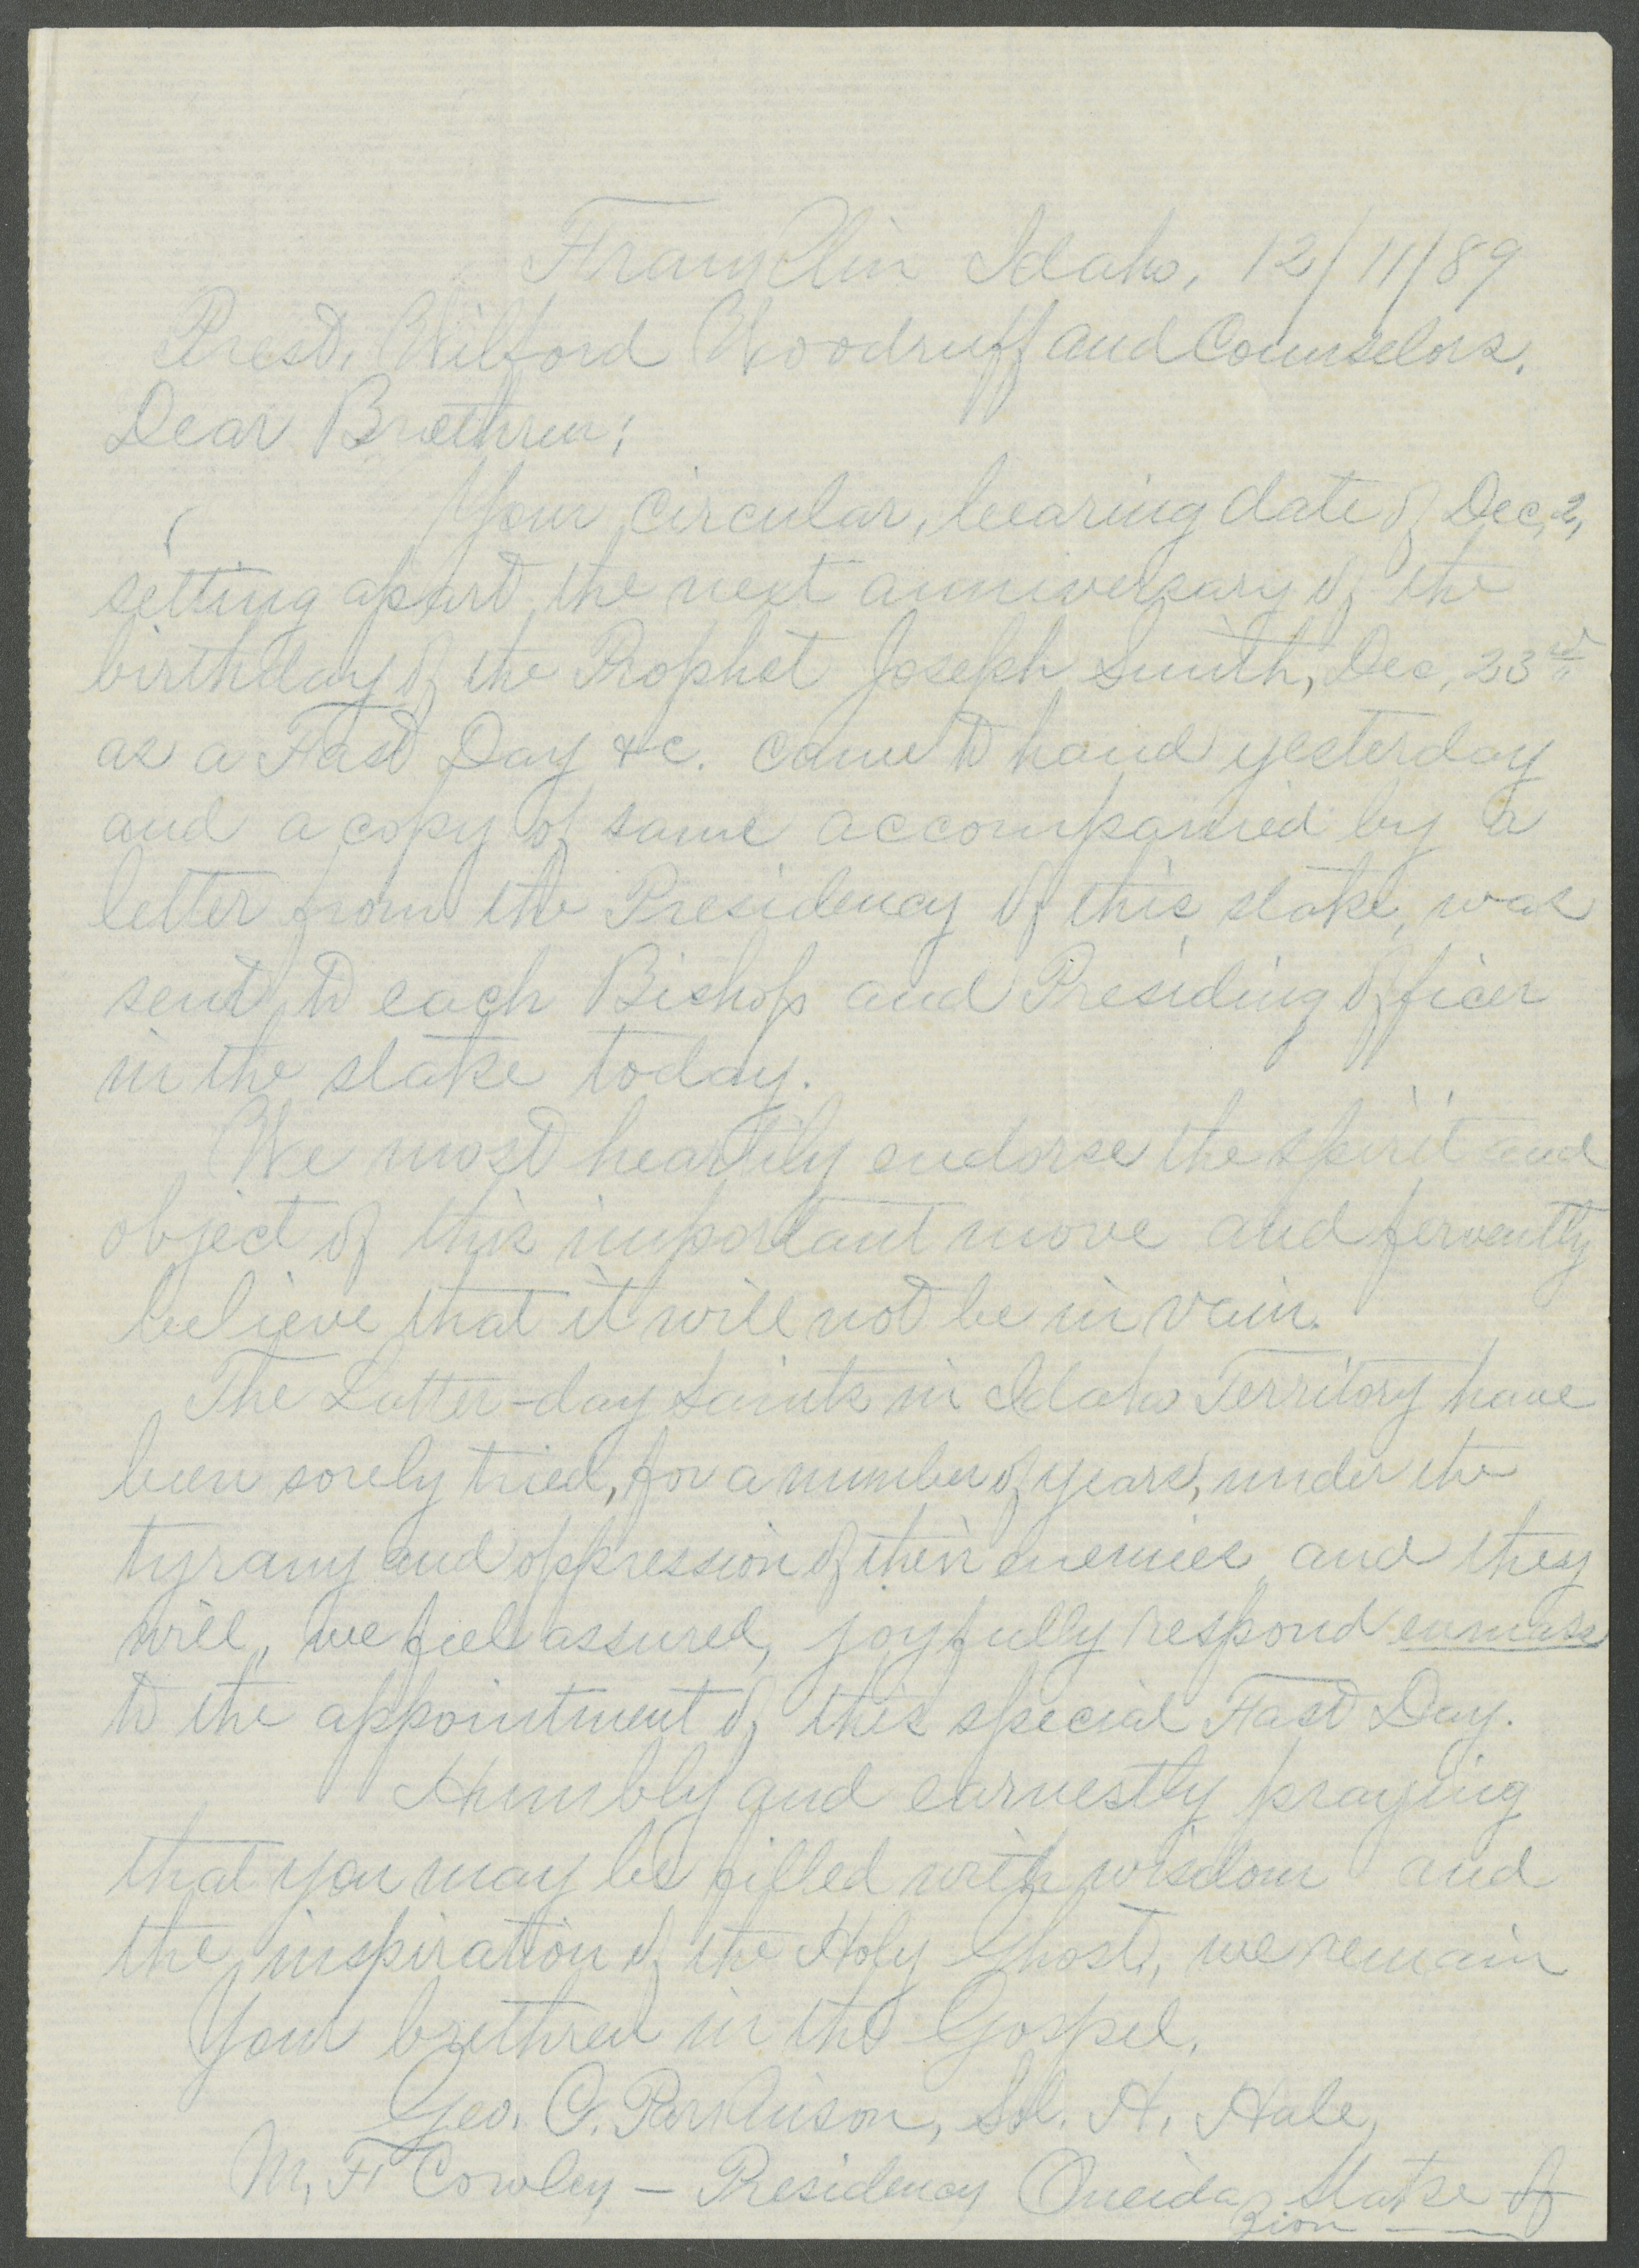 Franklin Idaho, 12/11/89
Prest. Wilford Woodruff and Counselors.
Dear Brethren;
Your circular, bearing date of Dec, 2,
setting apart the next anniversary of the
birthday of the Prophet Joseph Smith, Dec, 23rd
as a Fast Day &c. came to hand yesterday
and a copy of same accompanied by a
letter from the Presidency of this stake, was
sent to each Bishop and Presiding Officer
in the stake today.
We most heartily endorse the spirit and
object of this important move and fervently
believe that it will not be in vain.
The Latter-day Saints in Idaho Territory have
been sorely tried, for a number of years, under the
tyrany and oppression of their enemies and they
will, we feel assured, joyfully respond enmass
to the appointment of this special Fast Day.
Humbly and earnestly praying
that you may be filled with wisdom and
the inspiration of the Holy Ghost, we remain
Your brethren in the Gospel,
Geo. C. Parkinson, Sol. H. Hale,
M. F. Cowley — Presidency Oneida Stake of
Zion